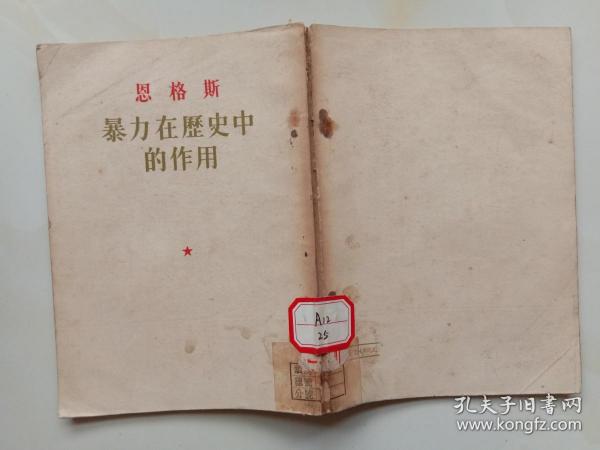 恩格斯
暴力在歷史中
的作用
A12
25
孔夫子旧书网
www.kongfz.com